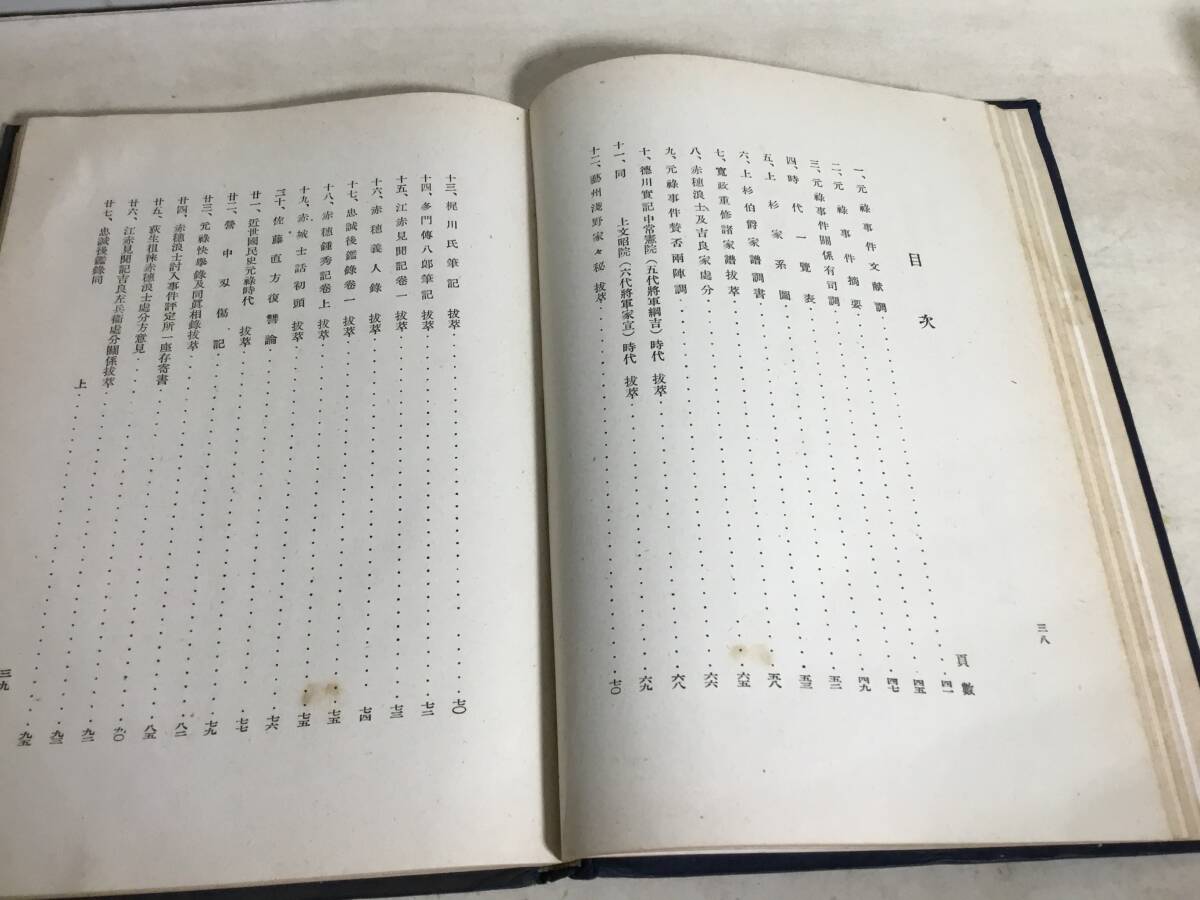 三八
目次
頁數
一、元祿事件文献調・・・四一
二、元祿事件摘要・・・四五
三、元祿事件關係有司調・・・四七
四、時代一覽表・・・四九
五、上杉家系圖・・・五二
六、上杉伯爵家譜調書・・・五三
七、寬政重修諸家譜拔萃・・・五八
八、赤穗浪士及吉良家處分・・・六五
九、元祿事件賛否兩陣調・・・六六
十、德川實記中常憲院(五代將軍綱吉)時代 拔萃・・・六八
十一、同 上文昭院(六代將軍家宣)時代 拔萃・・・六九
十二、藝州淺野家々秘 拔萃・・・七〇
十三、梶川氏筆記 拔萃・・・七〇
十四、多門傳八郎筆記 拔萃・・・七二
十五、江赤見聞記卷一 拔萃・・・七三
十六、赤穗義人錄 拔萃・・・七四
十七、忠誠後鑑錄卷一 拔萃・・・七五
十八、赤穗鍾秀記卷上 拔萃・・・七五
十九、赤城士話初頭 拔萃・・・七六
二十、佐藤直方復讐論・・・七七
廿一、近世國民史元祿時代 拔萃・・・七九
廿二、營中刄傷記・・・八二
廿三、元祿快擧錄及同眞相錄拔萃・・・八五
廿四、赤穗浪士討入事件評定所一座存寄書・・・九〇
廿五、荻生徂徠赤穗浪士處分方意見・・・九二
廿六、江赤見聞記吉良左兵衛處分關係拔萃・・・九三
廿七、忠誠後鑑錄同 上・・・九五
三九